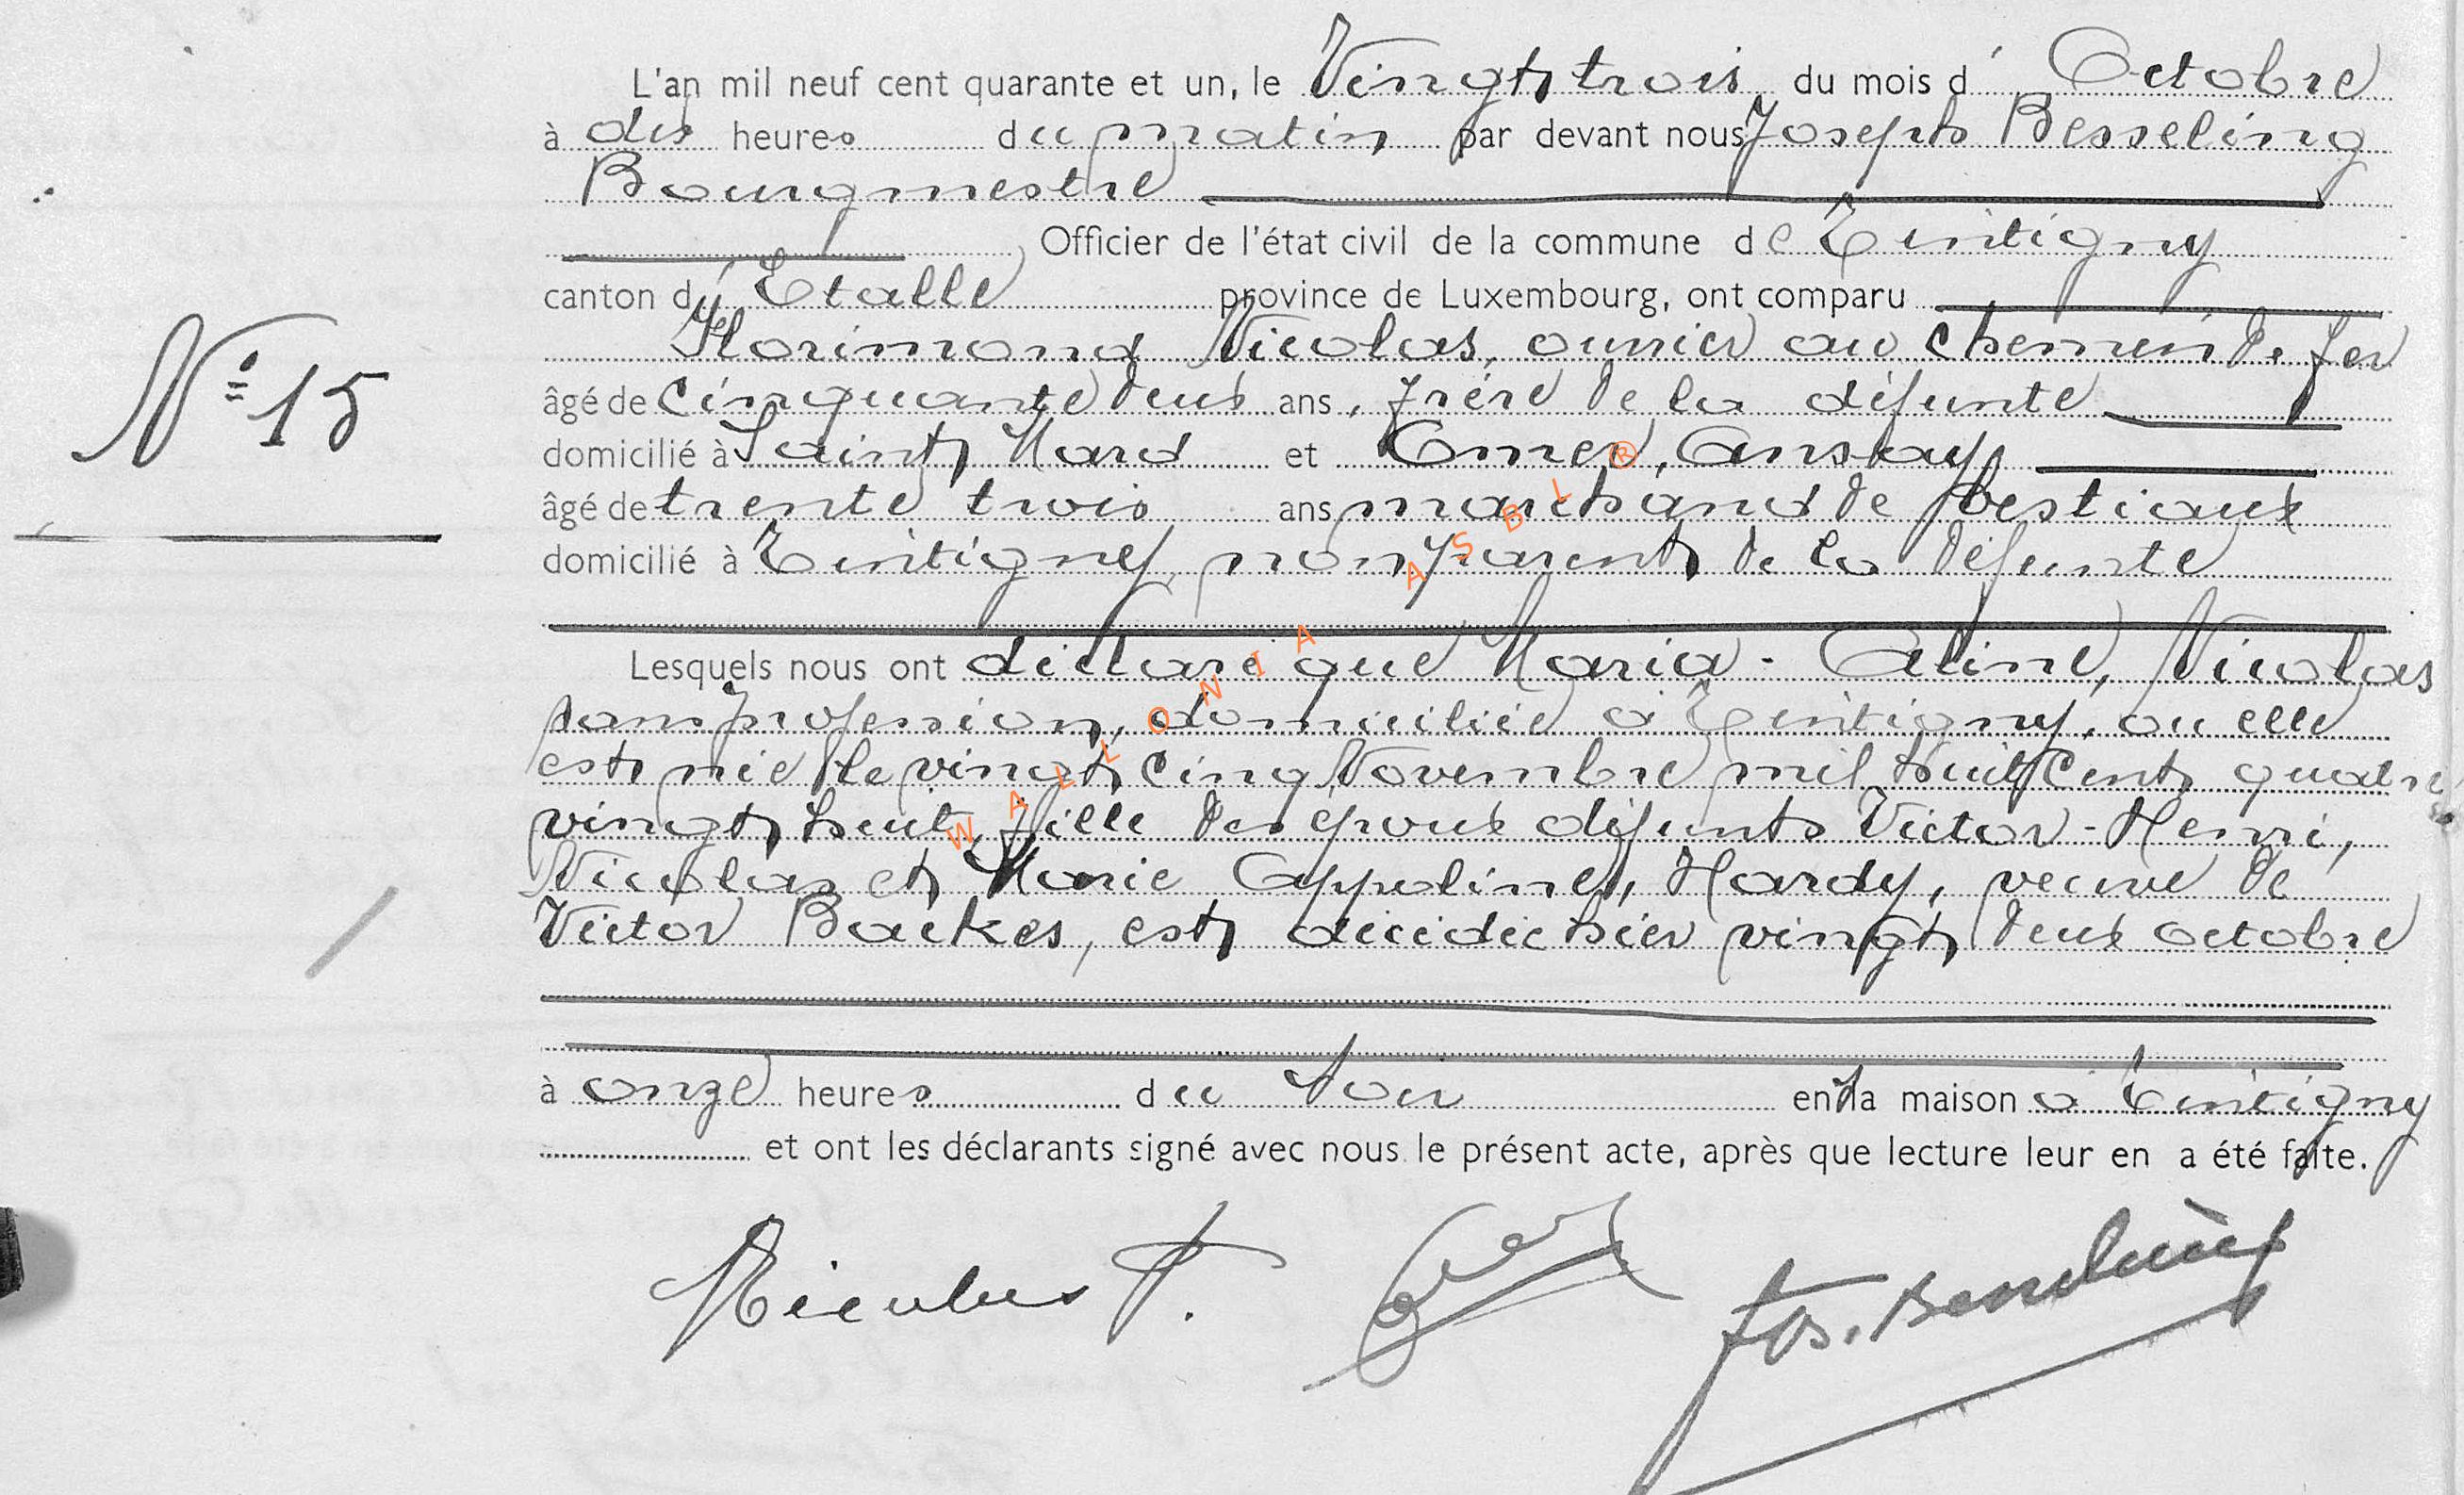 L'an mil neuf cent quarante et un, le Vingt trois du mois d' Octobre
à dix heures du matin par devant nous Joseph Besseling
Bourgmestre
Officier de l'état civil de la commune de Tintigny
canton d' Etalle province de Luxembourg, ont comparu
Florimond Nicolas, ouvrier au chemin de fer
N° 15
âgé de cinquante deux ans, frère de la défunte
domicilié à Saint Mard et Omer, Ansay
âgé de trente trois ans marchand de bestiaux
domicilié à Tintigny, non parent de la défunte
Lesquels nous ont déclaré que Maria - Céline, Nicolas
sans profession, domiciliée à Tintigny, ou elle
est née le vingt cinq Novembre mil huit cent quatre
vingt huit, fille des époux défunts Victor - Henri,
Nicolas et Marie Appoline, Hardy, veuve de
Victor Backes, est décédée hier vingt deux octobre
à onze heures du soir en la maison à Tintigny
et ont les déclarants signé avec nous le présent acte, après que lecture leur en a été faite.
Nicolas F. Jos. Besseling
WALLONIA ASBL ®